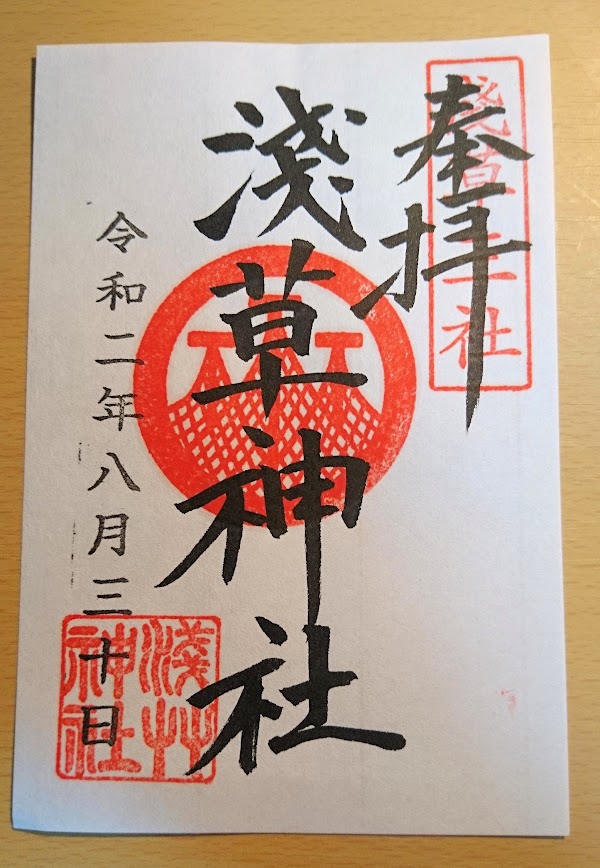 奉拝
淺草三社
淺草神社
令和二年八月三十日
淺艸神社